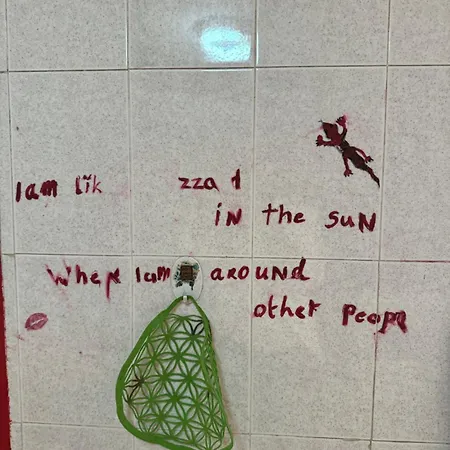 Iam Lik zza d
iN the suN
When Iam AROUND
other People